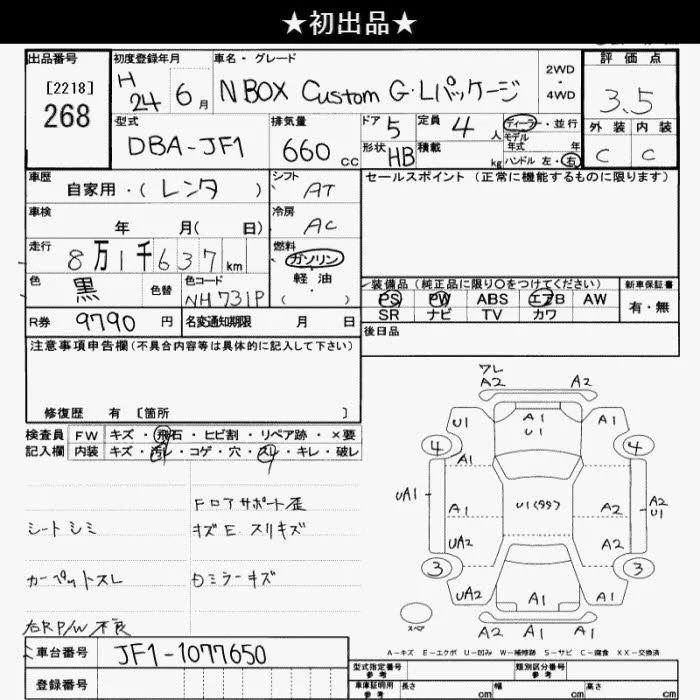 ★初出品★
出品番号
[2218]
268
初度登録年月
H 24 6月
車名・グレード
N BOX Custom G・Lパッケージ
2WD
・
4WD
評価点
3.5
型式
DBA-JF1
排気量
660 cc
ドア 5
定員 4 人
形状 HB
積載 kg
ディーラー・並行
モデル年式 年
ハンドル 左・右
外装 内装
C C
車歴
自家用・(レンタ)
シフト
AT
セールスポイント (正常に機能するものに限ります)
車検
年 月( 日)
冷房
AC
走行
8万1千637km
燃料
ガソリン
軽油
( )
色
黒
色替
色コード
NH731P
装備品 (純正品に限り○をつけてください)
新車保証書
PS PW ABS エアB AW
SR ナビ TV カワ
有・無
R券 9790 円
名変通知期限 月 日
後日品
注意事項申告欄 (不具合内容等は具体的に記入して下さい)
修復歴 有 〔箇所 〕
検査員記入欄
FW キズ・飛石・ヒビ割・リペア跡・×要
内装 キズ・汚レ・コゲ・穴・スレ・キレ・破レ
FロアサポートE歪
シートシミ
キズE スリキズ
カーペットスレ
Dミラーキズ
右RP/W不良
ワレ
A2 A2
U1 A1 U1 A1
4 4
A1
UA1 A1 U1(99) A2 A2 U1
UA2 A2
3 3
UA2 A1 A2
スペア
A2 A1 A1
A-キズ E-エクボ U-凹み W-補修跡 S-サビ C-腐食 XX-交換済
車台番号
JF1-1077650
登録番号
型式指定番号 参考
類別区分番号 参考
車庫証明用 参考
長さ cm
幅 cm
高さ cm